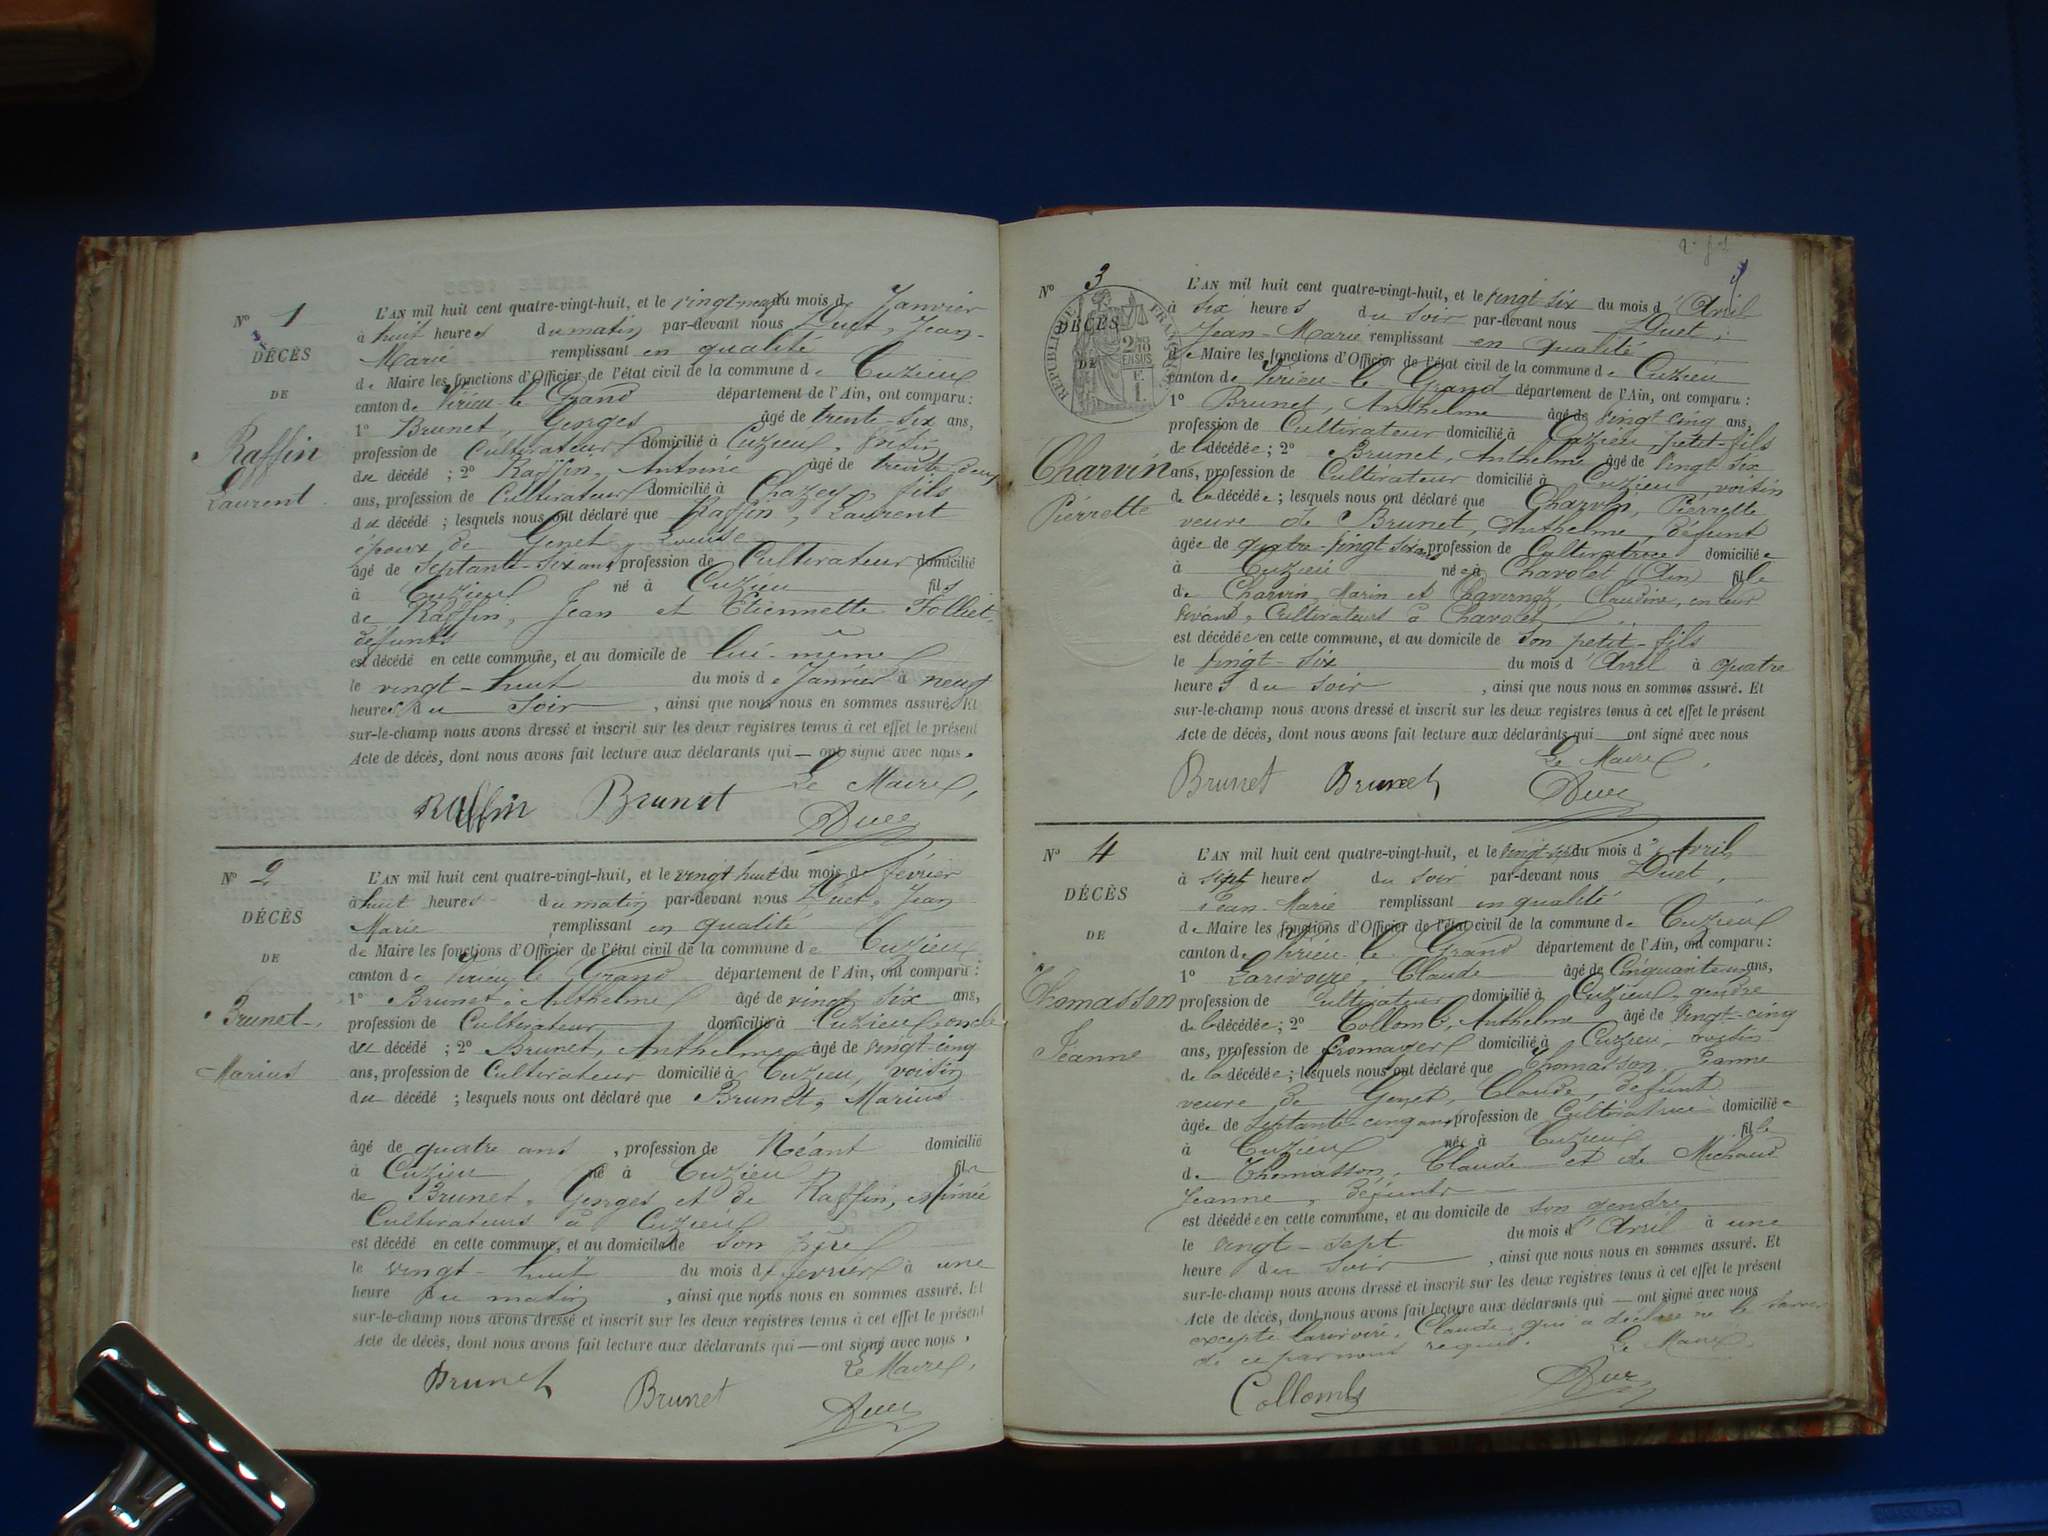 N° 1
DÉCÈS
DE
Raffin
Laurent
L'AN mil huit cent quatre-vingt-huit, et le vingt-neuf du mois de Janvier
à huit heures du matin par-devant nous Duet, Jean-
Marie remplissant en qualité
de Maire les fonctions d'Officier de l'état civil de la commune de Cuzieu
canton de Virieu-le-Grand département de l'Ain, ont comparu :
1° Brunet, Georges âgé de trente-six ans,
profession de Cultivateur domicilié à Cuzieu, voisin
du décédé ; 2° Raffin, Antoine âgé de trente-deux
ans, profession de Cultivateur domicilié à Chazey, fils
du décédé ; lesquels nous ont déclaré que Raffin, Laurent
époux de Genet, Louise
âgé de septante-six ans profession de Cultivateur domicilié
à Cuzieu né à Cuzieu fils
de Raffin, Jean et Etiennette Folliet,
défunts
est décédé en cette commune, et au domicile de lui-même
le vingt-huit du mois de Janvier à neuf
heures du soir , ainsi que nous nous en sommes assuré. Et
sur-le-champ nous avons dressé et inscrit sur les deux registres tenus à cet effet le présent
Acte de décès, dont nous avons fait lecture aux déclarants qui — ont signé avec nous.
Le Maire,
Raffin Brunet Duet
N° 2
DÉCÈS
DE
Brunet
Marius
L'AN mil huit cent quatre-vingt-huit, et le vingt huit du mois de février
à huit heures du matin par-devant nous Duet, Jean
Marie remplissant en qualité
de Maire les fonctions d'Officier de l'état civil de la commune de Cuzieu
canton de Virieu-le-Grand département de l'Ain, ont comparu :
1° Brunet, Anthelme âgé de vingt six ans,
profession de Cultivateur domicilié à Cuzieu oncle
du décédé ; 2° Brunet, Anthelme âgé de vingt-cinq
ans, profession de Cultivateur domicilié à Cuzieu, voisin
du décédé ; lesquels nous ont déclaré que Brunet, Marius
âgé de quatre ans , profession de Néant domicilié
à Cuzieu né à Cuzieu fils
de Brunet, Georges et de Raffin, Aimée
Cultivateurs à Cuzieu
est décédé en cette commune, et au domicile de son père
le vingt-huit du mois de février à une
heure du matin , ainsi que nous nous en sommes assuré. Et
sur-le-champ nous avons dressé et inscrit sur les deux registres tenus à cet effet le présent
Acte de décès, dont nous avons fait lecture aux déclarants qui — ont signé avec nous.
Le Maire,
Brunet Brunet Duet
N° 3
RÉPUBLIQUE FRANÇAISE
2/10 EN SUS
F. 1.
DÉCÈS
DE
Charvin
Pierrette
L'AN mil huit cent quatre-vingt-huit, et le vingt-six du mois d'Avril
à six heures du soir par-devant nous Duet,
Jean-Marie remplissant en qualité
de Maire les fonctions d'Officier de l'état civil de la commune de Cuzieu
canton de Virieu-le-Grand département de l'Ain, ont comparu :
1° Brunet, Anthelme âgé de vingt cinq ans,
profession de Cultivateur domicilié à Cuzieu, petit-fils
de la décédée ; 2° Brunet, Anthelme âgé de vingt six
ans, profession de Cultivateur domicilié à Cuzieu voisin
de la décédée ; lesquels nous ont déclaré que Charvin, Pierrette
veuve de Brunet, Anthelme, défunt
âgée de quatre-vingt six ans profession de Cultivatrice domiciliée
à Cuzieu née à Chavolet (Ain) fille
de Charvin, Marin et Claudine, en leur
vivant, Cultivateurs à Chavolet
est décédée en cette commune, et au domicile de son petit-fils
le vingt-six du mois d'Avril à quatre
heures du soir , ainsi que nous nous en sommes assuré. Et
sur-le-champ nous avons dressé et inscrit sur les deux registres tenus à cet effet le présent
Acte de décès, dont nous avons fait lecture aux déclarants qui — ont signé avec nous
Le Maire,
Brunet Brunet Duet
N° 4
DÉCÈS
DE
Thomasson
Jeanne
L'AN mil huit cent quatre-vingt-huit, et le vingt-sept du mois d'Avril
à sept heures du soir par-devant nous Duet,
Jean-Marie remplissant en qualité
de Maire les fonctions d'Officier de l'état civil de la commune de Cuzieu
canton de Virieu-le-Grand département de l'Ain, ont comparu :
1° Larivoire, Claude âgé de Cinquante ans,
profession de Cultivateur domicilié à Cuzieu, gendre
de la décédée ; 2° Collomb, Anthelme âgé de vingt-cinq
ans, profession de fromager domicilié à Cuzieu, voisin
de la décédée ; lesquels nous ont déclaré que Thomasson, Jeanne
veuve de Genet, Claude, défunt
âgée de septante-cinq ans, profession de Cultivatrice domiciliée
à Cuzieu née à Cuzieu fille
de Thomasson, Claude et de Michaud
Jeanne, défunts
est décédée en cette commune, et au domicile de son gendre
le vingt-sept du mois d'Avril à une
heure du soir , ainsi que nous nous en sommes assuré. Et
sur-le-champ nous avons dressé et inscrit sur les deux registres tenus à cet effet le présent
Acte de décès, dont nous avons fait lecture aux déclarants qui — ont signé avec nous
excepté Larivoire, Claude qui a déclaré ne le savoir
de ce par nous requis. Le Maire,
Collomb Duet